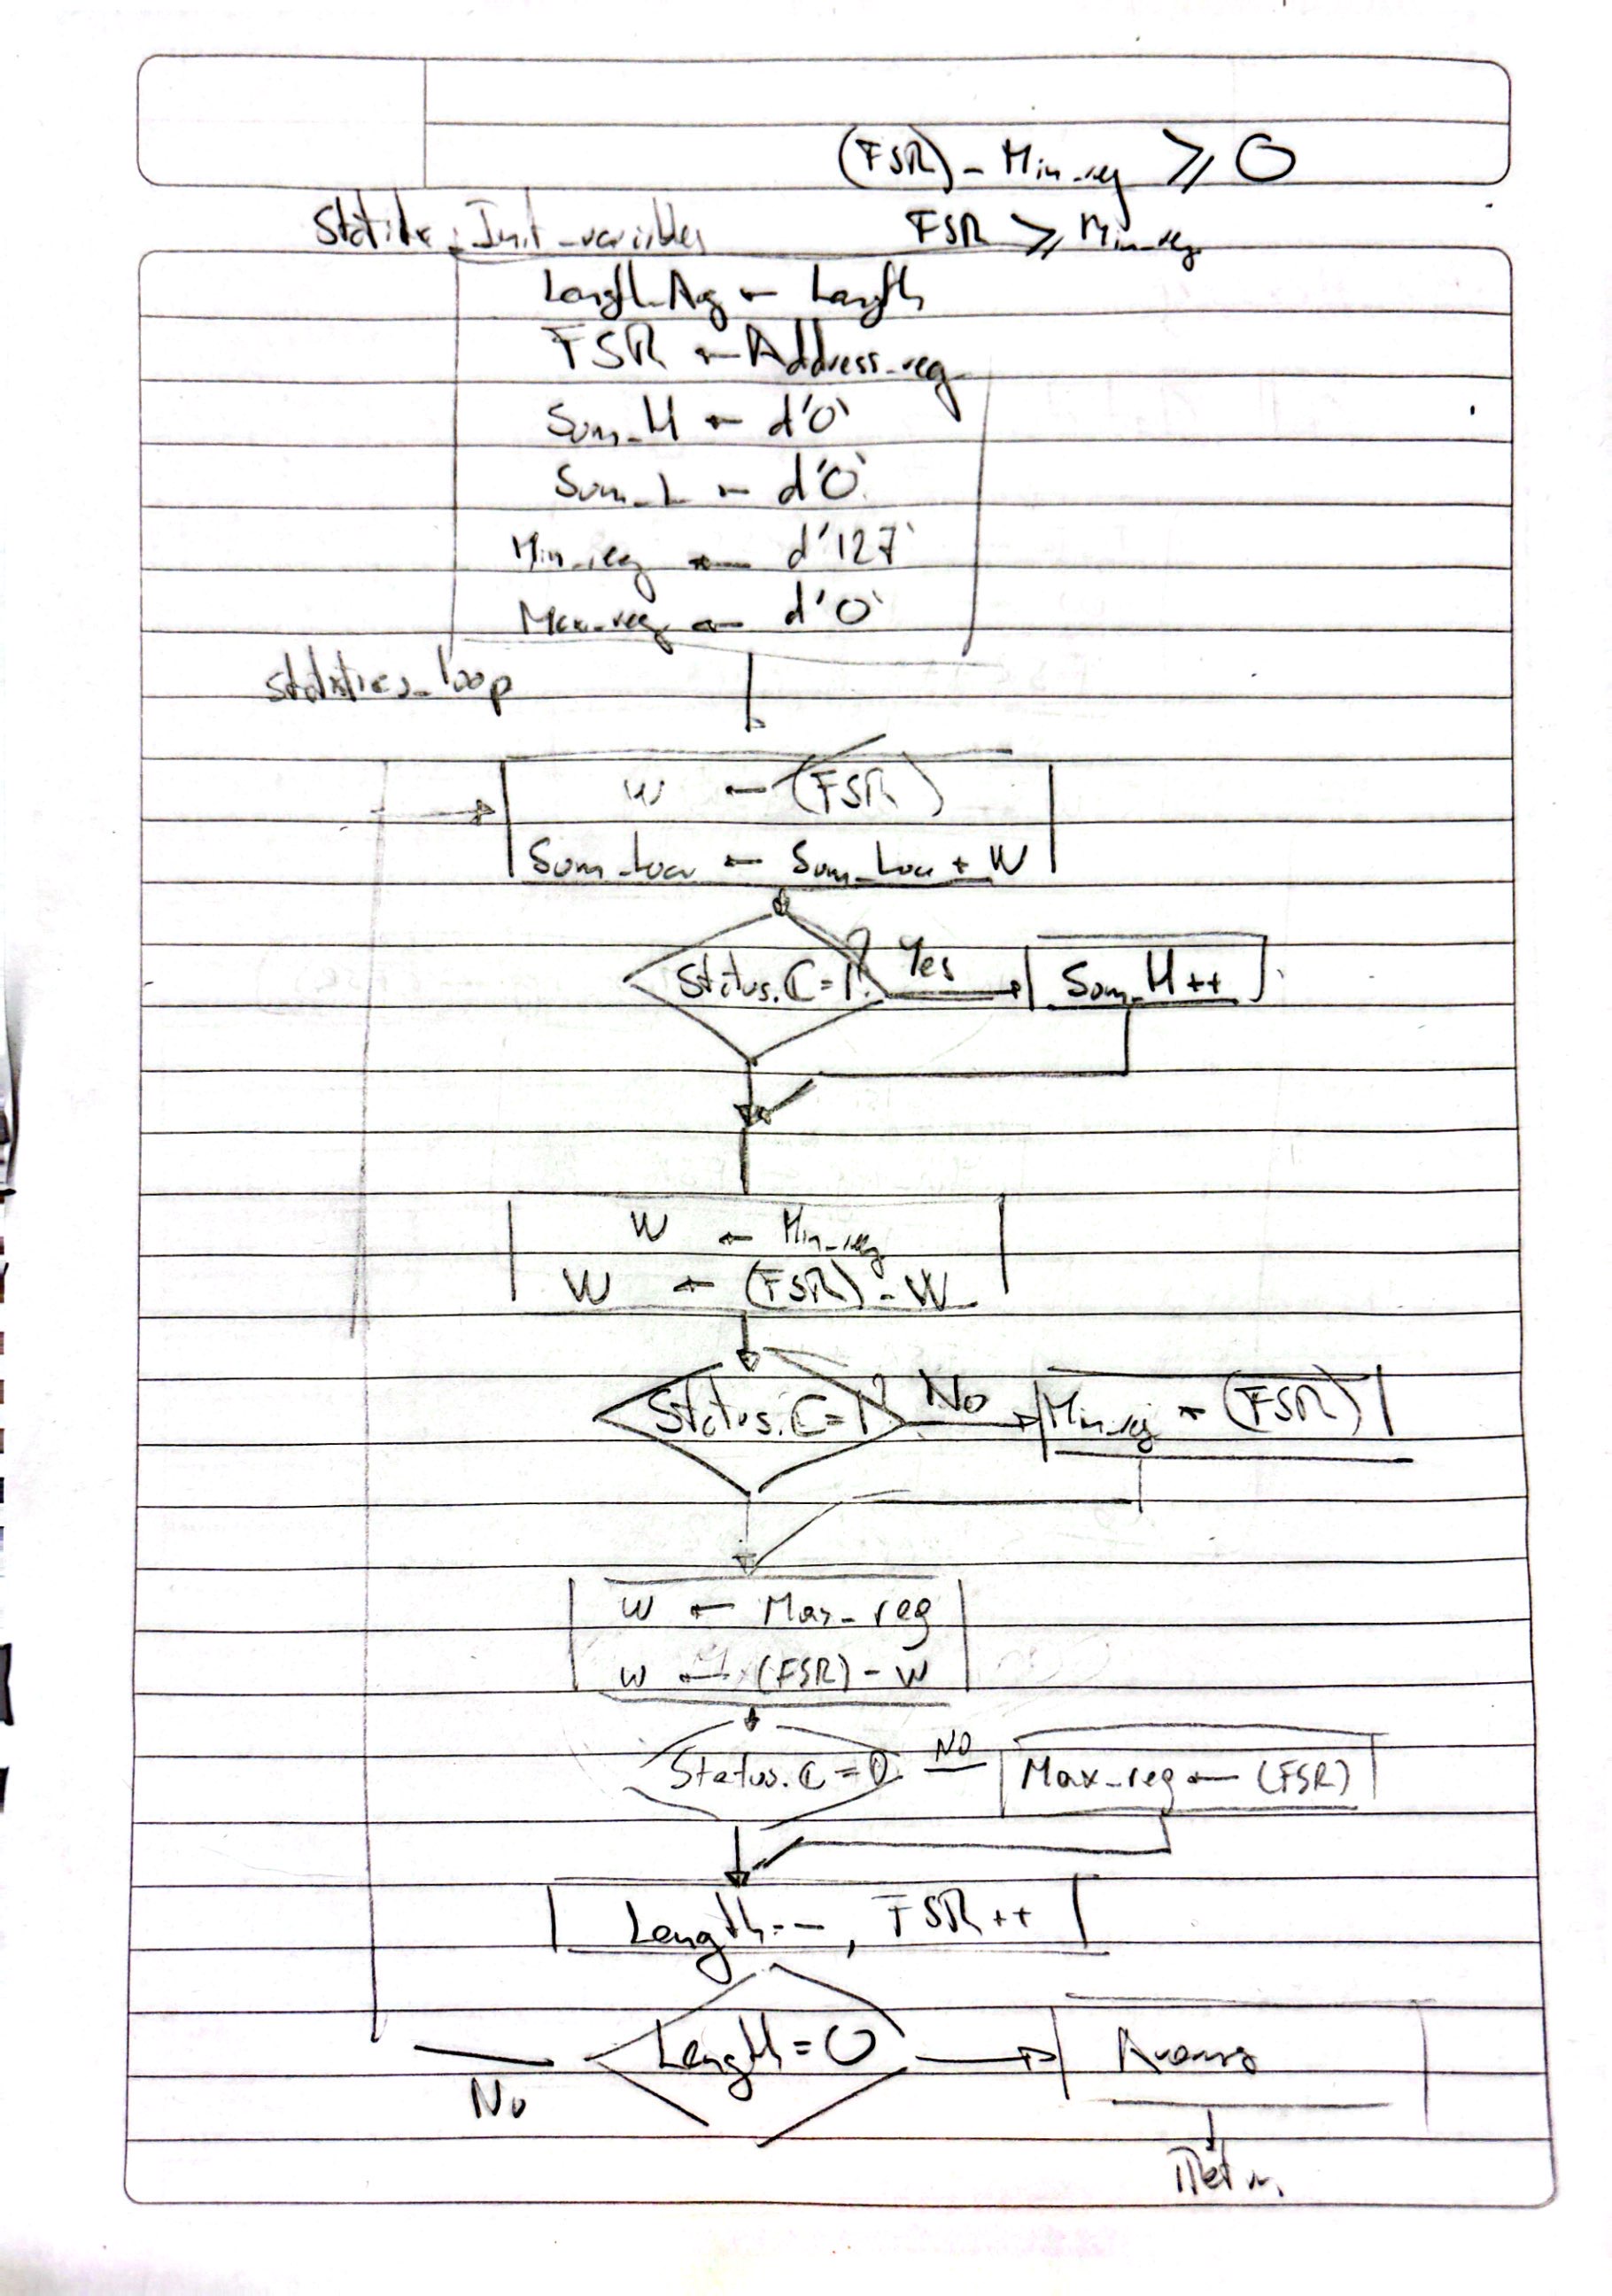 (FSR) - Min_reg ≥ 0
Init_variables
FSR ≥ Min_reg
Length ← Length
FSR ← Address_reg
Sum_H ← d'0'
Sum_L ← d'0'
Min_reg ← d'127'
Max_reg ← d'0'
statistics_loop
W ← (FSR)
Sum_Low ← Sum_Low + W
Status.C=1? Yes Sum_H++
W ← Min_reg
W ← (FSR) - W
Status.C=1? No Min_reg ← (FSR)
W ← Max_reg
W ← (FSR) - W
Status.C=0 NO Max_reg ← (FSR)
Length--, FSR++
Length=0
No